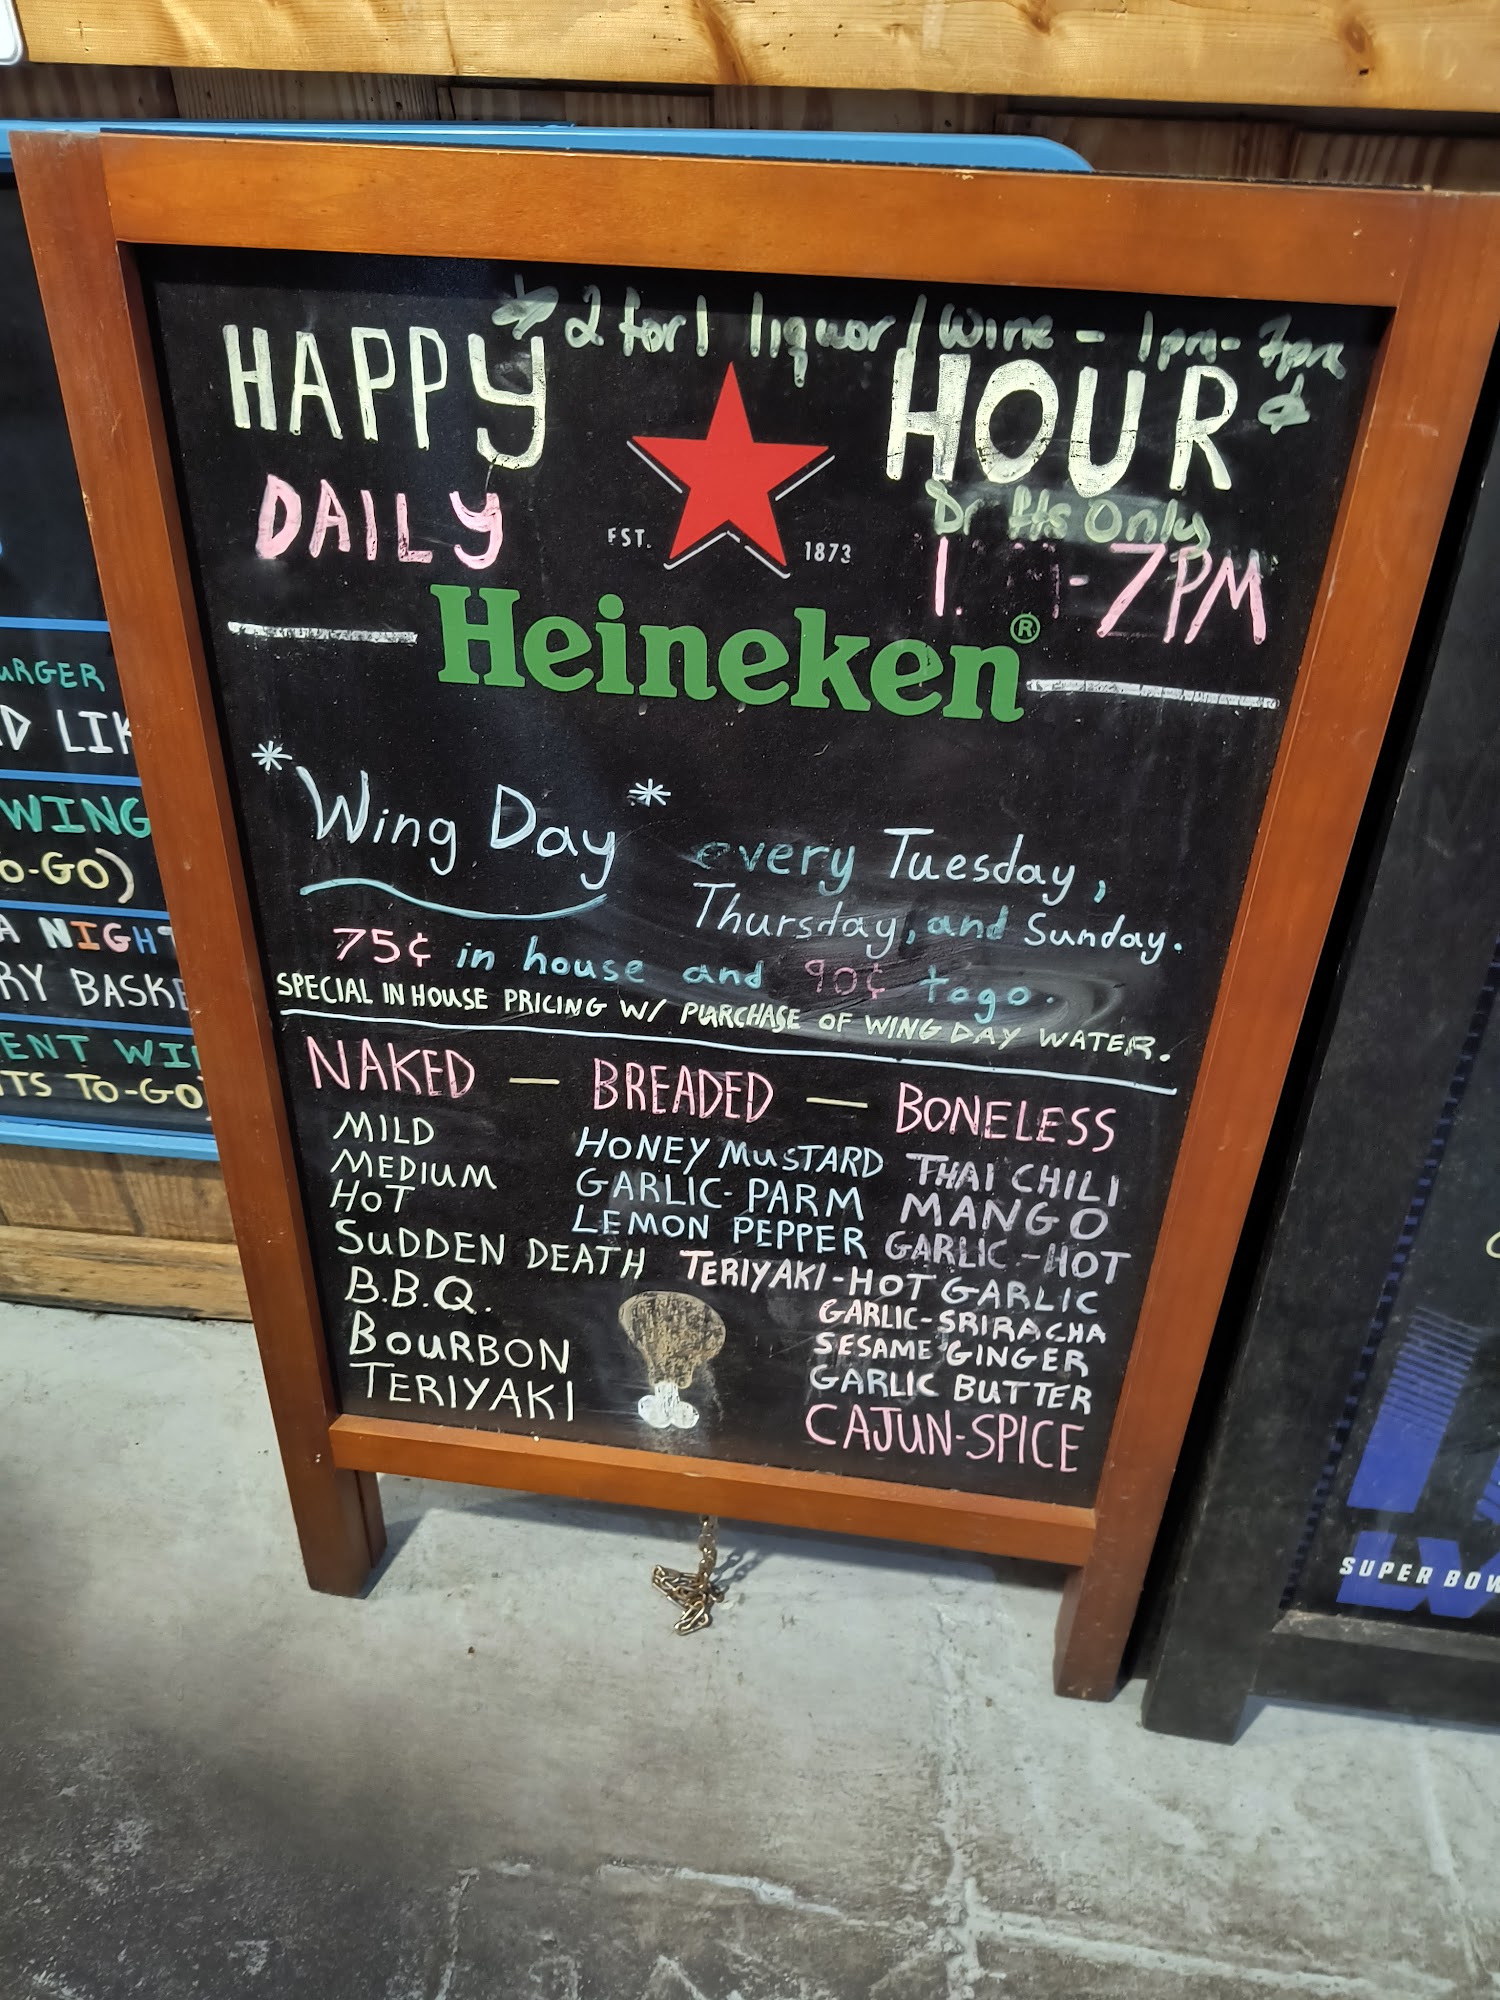 * 2 for 1 liquor / Wine - 1pm - 7pm *
HAPPY HOUR
DAILY
Only
EST. 1873
- 7PM
Heineken®
*Wing Day* every Tuesday,
Thursday, and Sunday.
75¢ in house and 90¢ togo.
SPECIAL IN HOUSE PRICING W/ PURCHASE OF WING DAY WATER.
NAKED — BREADED — BONELESS
MILD
MEDIUM
HOT
SUDDEN DEATH
B.B.Q.
BOURBON
TERIYAKI
HONEY MUSTARD
GARLIC-PARM
LEMON PEPPER
THAI CHILI
MANGO
GARLIC-HOT
TERIYAKI-HOT GARLIC
GARLIC-SRIRACHA
SESAME GINGER
GARLIC BUTTER
CAJUN-SPICE
URGER
D LIK
WING
O-GO)
A NIGHT
RY BASKE
ENT WI
TS TO-GO
SUPER BOW